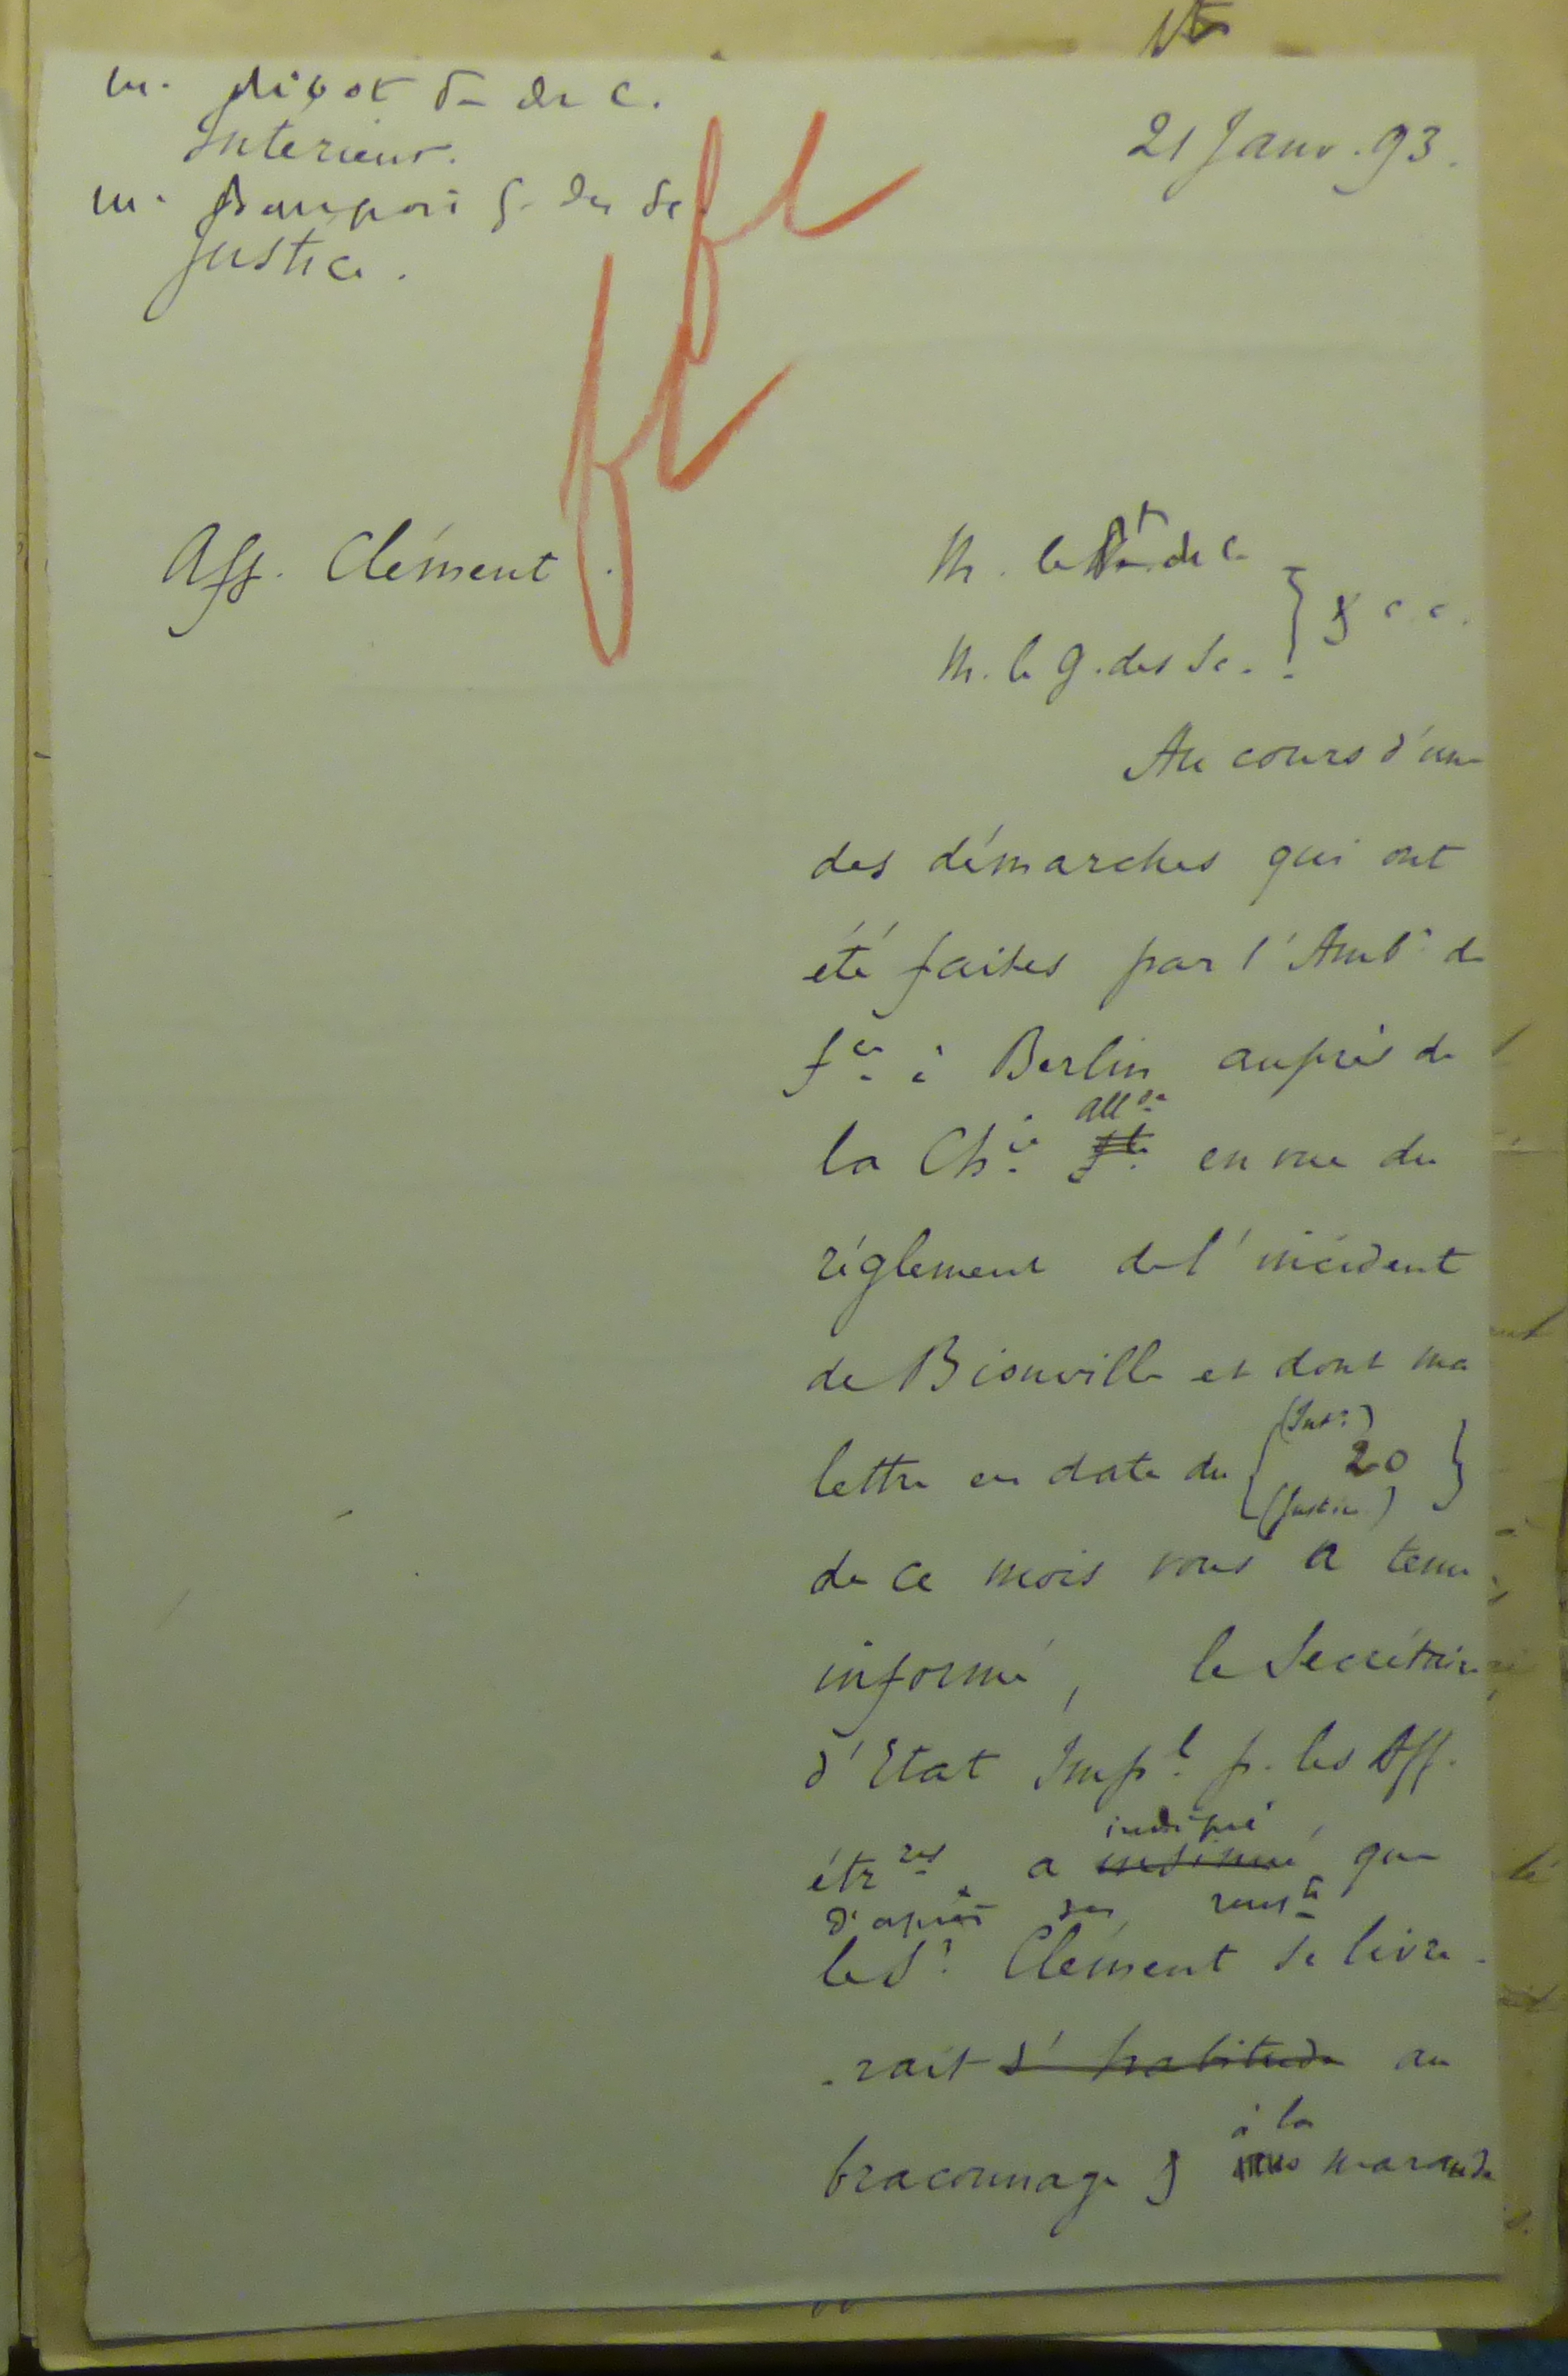 M. Ribot P. du C.
Intérieur.
M. Bourgeois G. des Sc.
Justice.
21 Janv. 93.
Aff. Clément.
M. le Pt du C.
M. le G. des Sc.
Au cours d'une
des démarches qui ont
été faites par l'Ambr de
fce à Berlin auprès de
la Chie allde en vue du
réglement de l'incident
de Bionville et dont ma
lettre en date du { (Intr) 20 (Justice) }
de ce mois vous a tenu
informé, le Secrétaire
d'Etat Impl p. les Aff.
étres a insinué indiqué que
d'après ses renst
le Sr Clément se livre-
-rait d'habitude au
braconnage & à la maraude